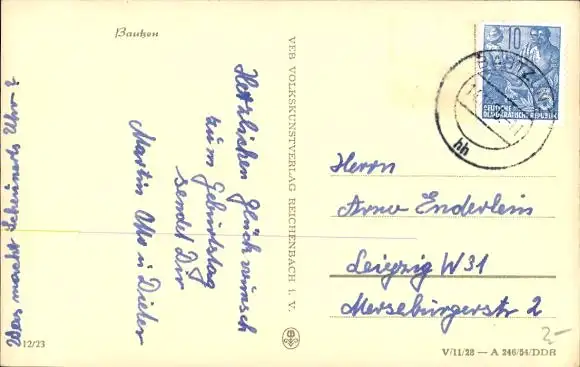 Bautzen
Herzlichen Glückwunsch
zum Geburtstag
sendet Dir
Martin Otto u. Dieter
Was macht Uhr?
12/23
VEB VOLKSKUNSTVERLAG REICHENBACH I. V.
10
DEUTSCHE
DEMOKRATISCHE REPUBLIK
hh
Herrn
Arno Enderlein
Leipzig W 31
Merseburgerstr 2
V/11/28 — A 246/54/DDR
2,-